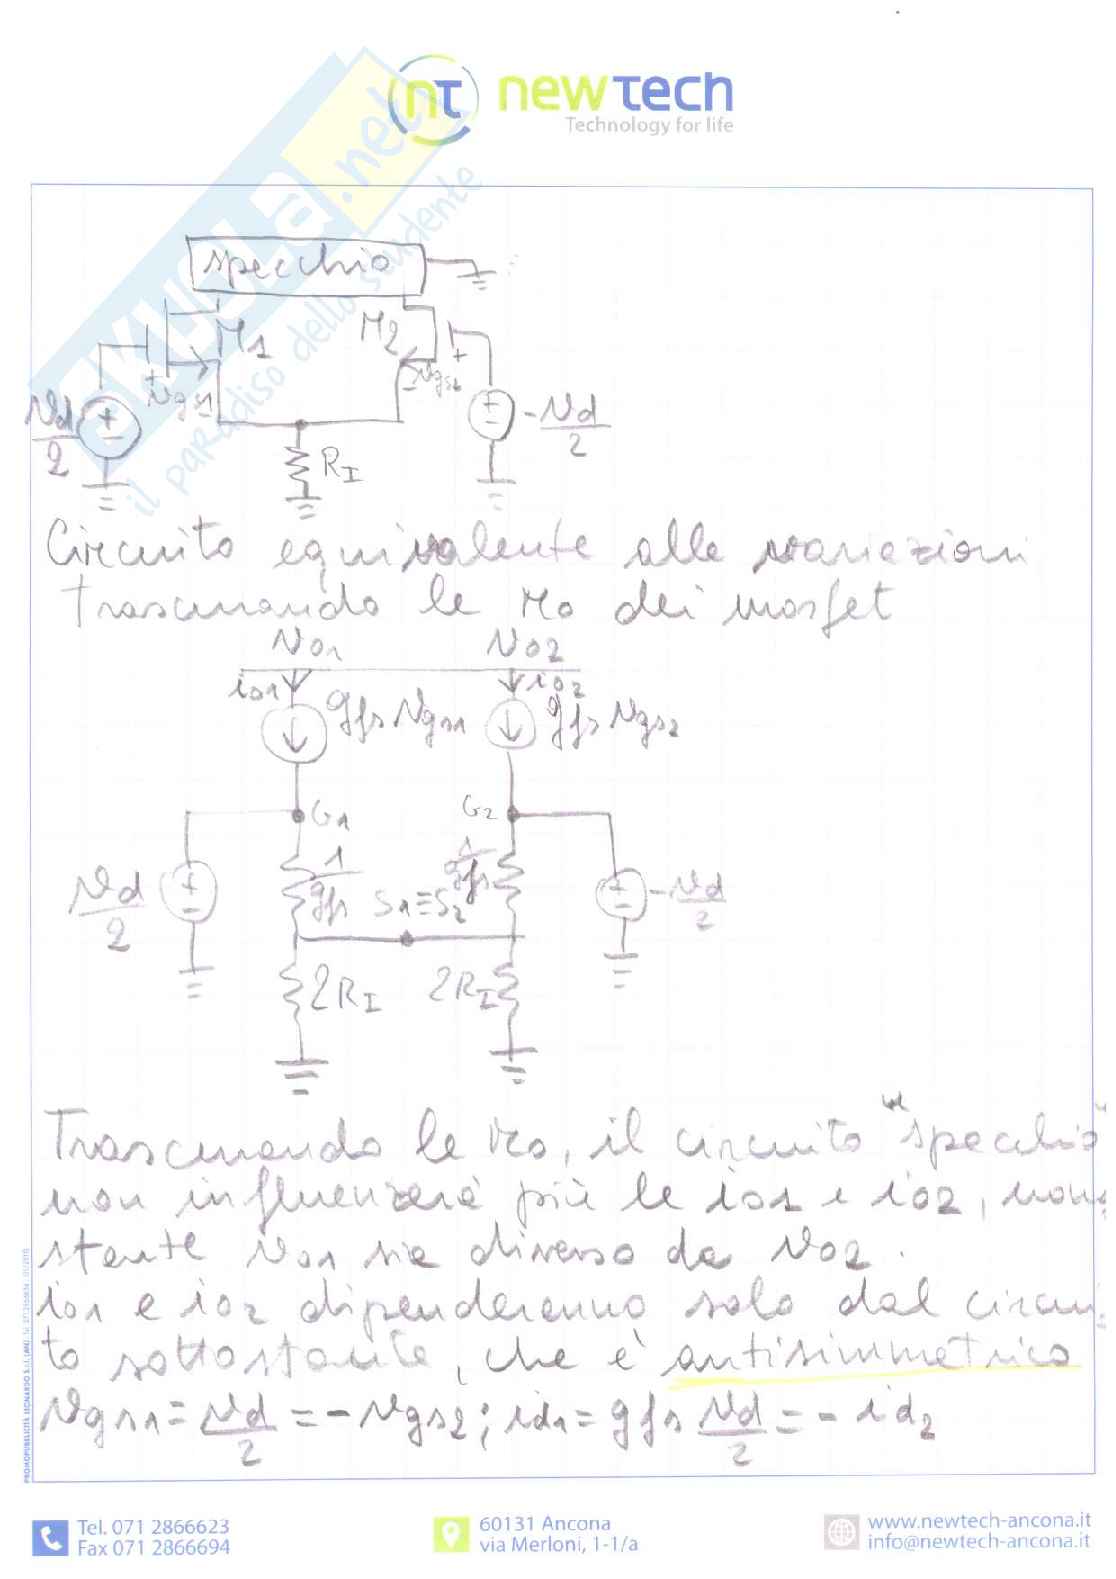 nτ newτech
Technology for life
SKUOLA.net
il paradiso dello studente
specchio
M1
M2
vgs1
vgs2
vd/2
-vd/2
RI
Circuito equivalente alle variazioni
trascurando le ro dei mosfet
vo1 vo2
io1 io2
gfs vgs1 gfs vgs2
G1 G2
vd/2 1/gfs S1≡S2 1/gfs -vd/2
2RI 2RI
Trascurando le ro, il circuito "specchio"
non influenzerà più le io1 e io2, nono-
stante vo1 sia diverso da vo2.
io1 e io2 dipenderanno solo dal circui-
to sottostante, che è antisimmetrico
vgs1 = vd/2 = -vgs2 ; id1 = gfs vd/2 = - id2
Tel. 071 2866623
Fax 071 2866694
60131 Ancona
via Merloni, 1-1/a
www.newtech-ancona.it
info@newtech-ancona.it